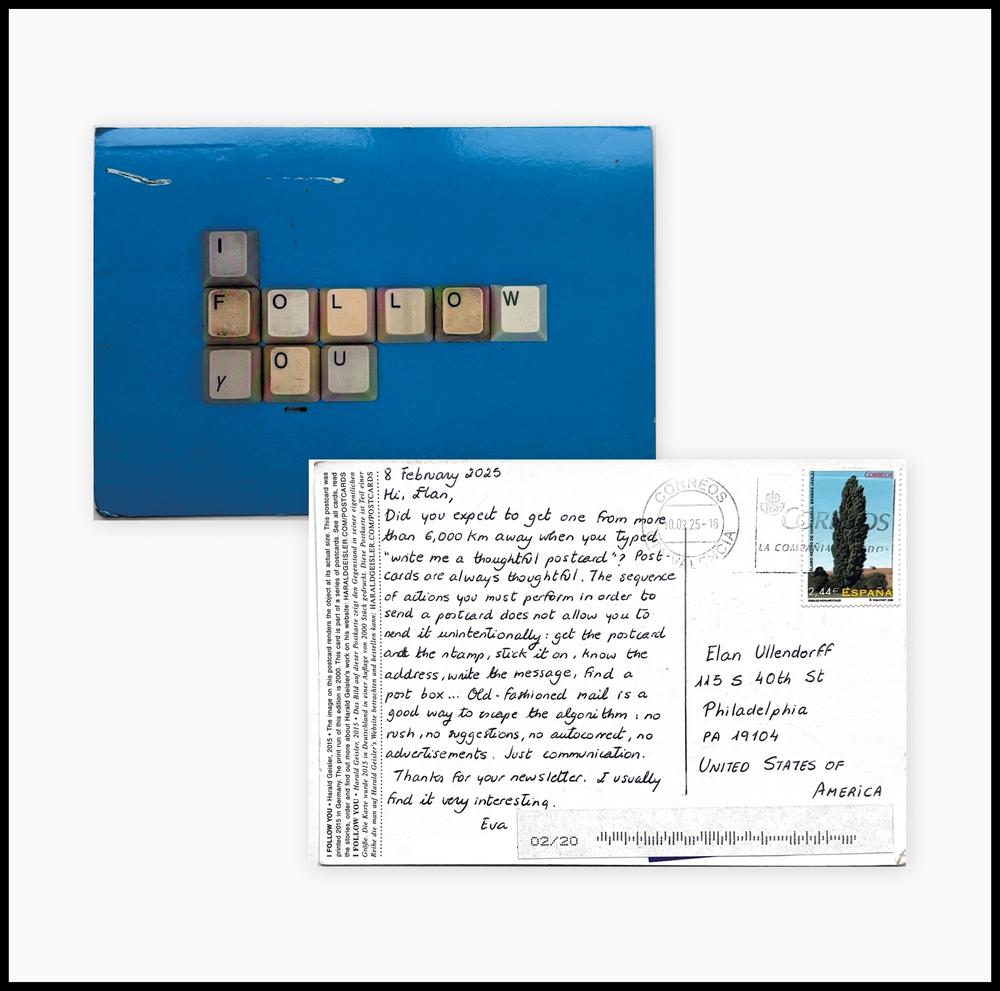 I
FOLLOW
yOU
I FOLLOW YOU • Harald Geisler, 2015 • The image on this postcard renders the object at its actual size. This postcard was
printed 2015 in Germany. The print run of this edition is 2000. This card is part of a series of postcards. See all cards, read
the stories, order and find out more about Harald Geisler's work on his website: HARALDGEISLER.COM/POSTCARDS
I FOLLOW YOU • Harald Geisler, 2015 • Das Bild auf dieser Postkarte zeigt den Gegenstand in seiner eigentlichen
Größe. Die Karte wurde 2015 in Deutschland in einer Auflage von 2000 Stück gedruckt. Diese Postkarte ist Teil einer
Reihe die man auf Harald Geisler's Website betrachten und bestellen kann: HARALDGEISLER.COM/POSTCARDS
8 February 2025
Hi, Elan,
Did you expect to get one from more
than 6,000 km away when you typed
"write me a thoughtful postcard"? Post-
cards are always thoughtful. The sequence
of actions you must perform in order to
send a postcard does not allow you to
send it unintentionally: get the postcard
and the stamp, stick it on, know the
address, write the message, find a
post box... Old-fashioned mail is a
good way to escape the algorithm: no
rush, no suggestions, no autocorrect, no
advertisements. Just communication.
Thanks for your newsletter. I usually
find it very interesting.
Eva
CORREOS
10.02 25-16
VALENCIA
CORREOS
LA COMPAÑIA
CORREOS
2,44€ ESPAÑA
Elan Ullendorff
115 S 40th St
Philadelphia
PA 19104
UNITED STATES OF
AMERICA
02/20